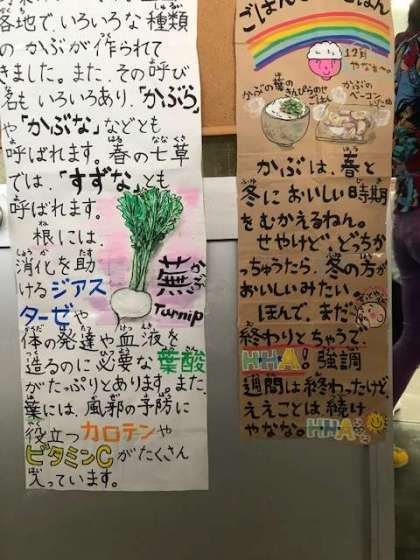 各地で、いろいろな種類
のかぶが作られて
きました。また、その呼び
名もいろいろあり、「かぶら」
や「かぶな」などとも
呼ばれます。春の七草
では、「すずな」とも
呼ばれます。
根には、
消化を助
けるジアス
ターゼや
体の発達や血液を
造るのに必要な葉酸
がたっぷりとあります。また、
葉には、風邪の予防に
役立つカロテンや
ビタミンCがたくさん
入っています。
蕪
かぶ
Turnip
12月
やなぁ〜
かぶの葉の
きんぴらのせ
ごはん
かぶの
ベーコン
かぶは、春と
冬においしい時期
をむかえるねん。
せやけど、どっちか
っちゅうたら、冬の方が
おいしいみたい。
ほんで、まだ
終わりとちゃうで、
HHA!強調
週間は終わったけど、
ええことは続け
やなな。HHA